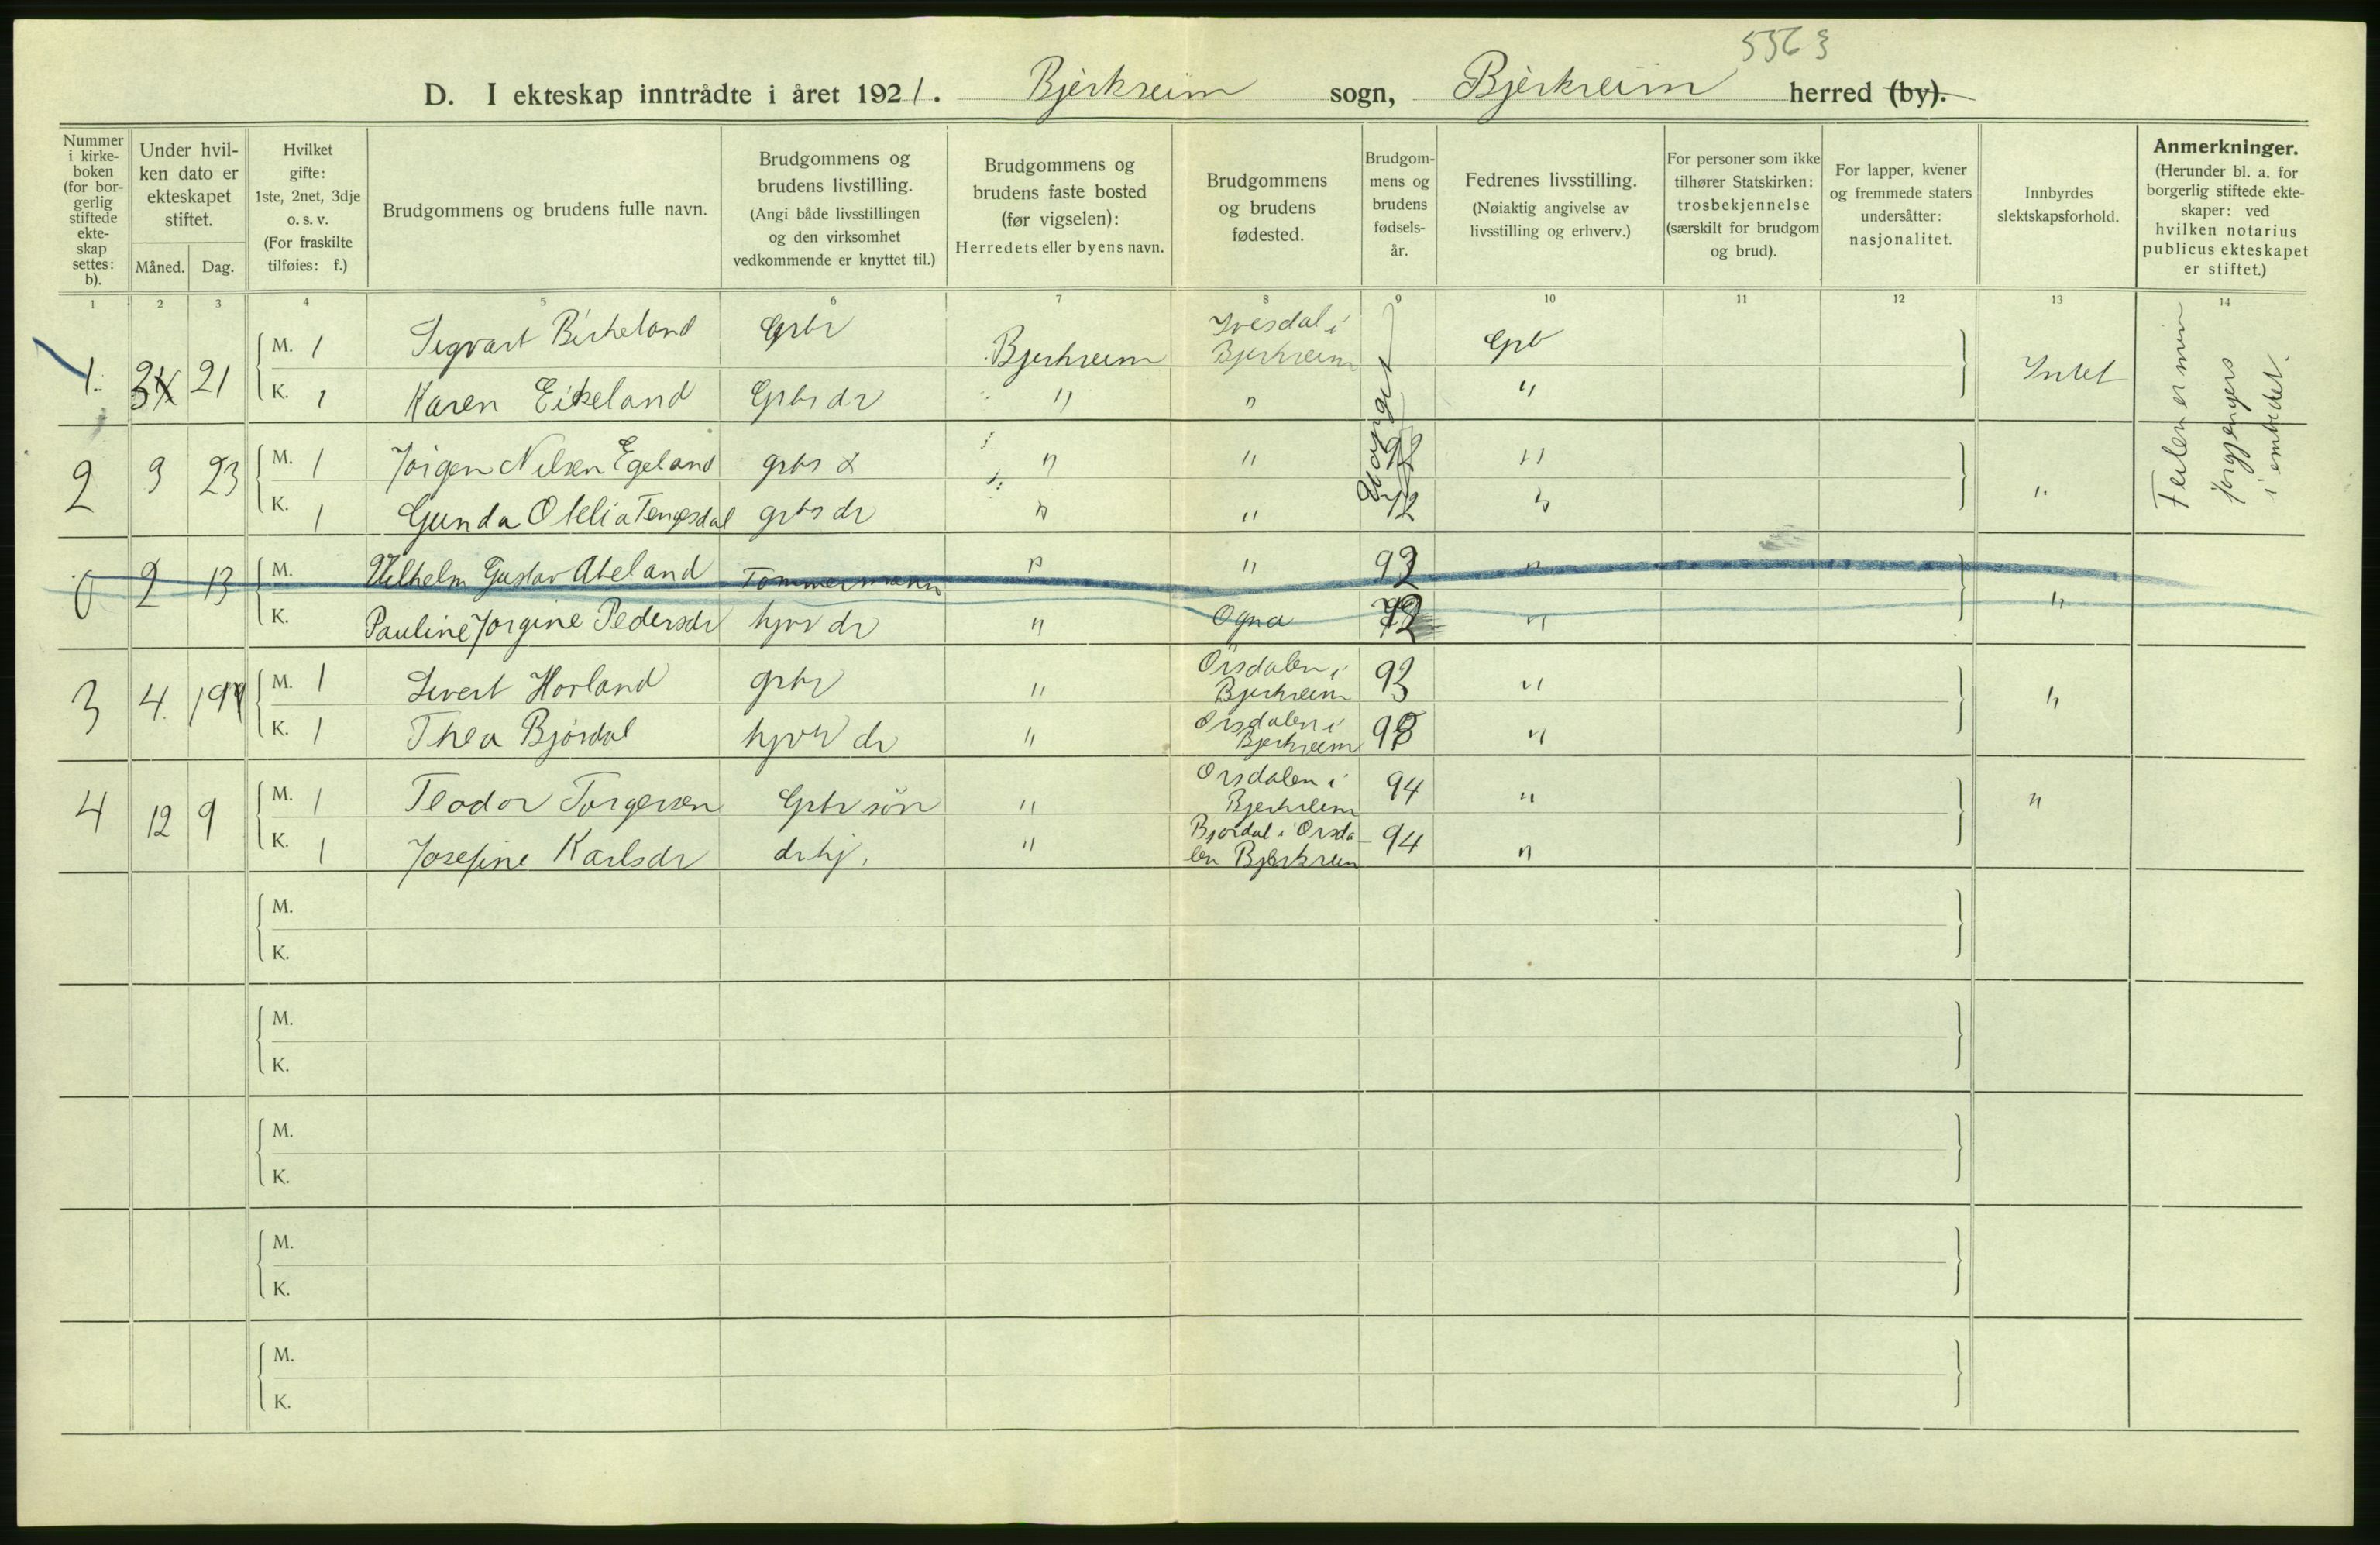 5563
D. I ekteskap inntrådte i året 1921. Bjerkreim sogn, Bjerkreim herred (by).
Nummer i kirke-boken (for bor-gerlig stiftede ekte-skap settes: b).
Under hvil-ken dato er ekteskapet stiftet.
Måned. Dag.
Hvilket gifte: 1ste, 2net, 3dje o. s. v. (For fraskilte tilføies: f.)
Brudgommens og brudens fulle navn.
Brudgommens og brudens livstilling. (Angi både livsstillingen og den virksomhet vedkommende er knyttet til.)
Brudgommens og brudens faste bosted (før vigselen): Herredets eller byens navn.
Brudgommens og brudens fødested.
Brudgom-mens og brudens fødsels-år.
Fedrenes livsstilling. (Nøiaktig angivelse av livsstilling og erhverv.)
For personer som ikke tilhører Statskirken: trosbekjennelse (særskilt for brudgom og brud).
For lapper, kvener og fremmede staters undersåtter: nasjonalitet.
Innbyrdes slektskapsforhold.
Anmerkninger. (Herunder bl. a. for borgerlig stiftede ekte-skaper: ved hvilken notarius publicus ekteskapet er stiftet.)
1 2 3 4 5 6 7 8 9 10 11 12 13 14
1. 21 M. 1 Sigvart Birkeland Grbr Bjerkreim Ivesdal i Bjerkreim Grb Intet
K. 1 Karen Eikeland Grbr dr " " "
Uopget
Feilen er min forgjengers i embedet.
2 3 23 M. 1 Jørgen Nilsen Egeland grbr " " "
K. 1 Gunda Otelia Tengesdal grbr dr " " " "
0 2 13 M. Vilhelm Gustav Abeland Tømmermann " " 92 "
K. Pauline Jørgine Pedersdr hjv dr " Ogna " "
3 4. 19 M. 1 Sivert Horland grbr " Örsdalen i Bjerkreim 93 "
K. 1 Thea Bjørdal hjv dr " Örsdalen i Bjerkreim 98 " "
4 12 9 M. 1 Teodor Torgersen Grbr sön " Orsdalen i Bjerkreim 94 " "
K. 1 Josefine Karlsdr dr hj. " Bjordal i Orsda len Bjerkreim 94 "
M.
K.
M.
K.
M.
K.
M.
K.
M.
K.